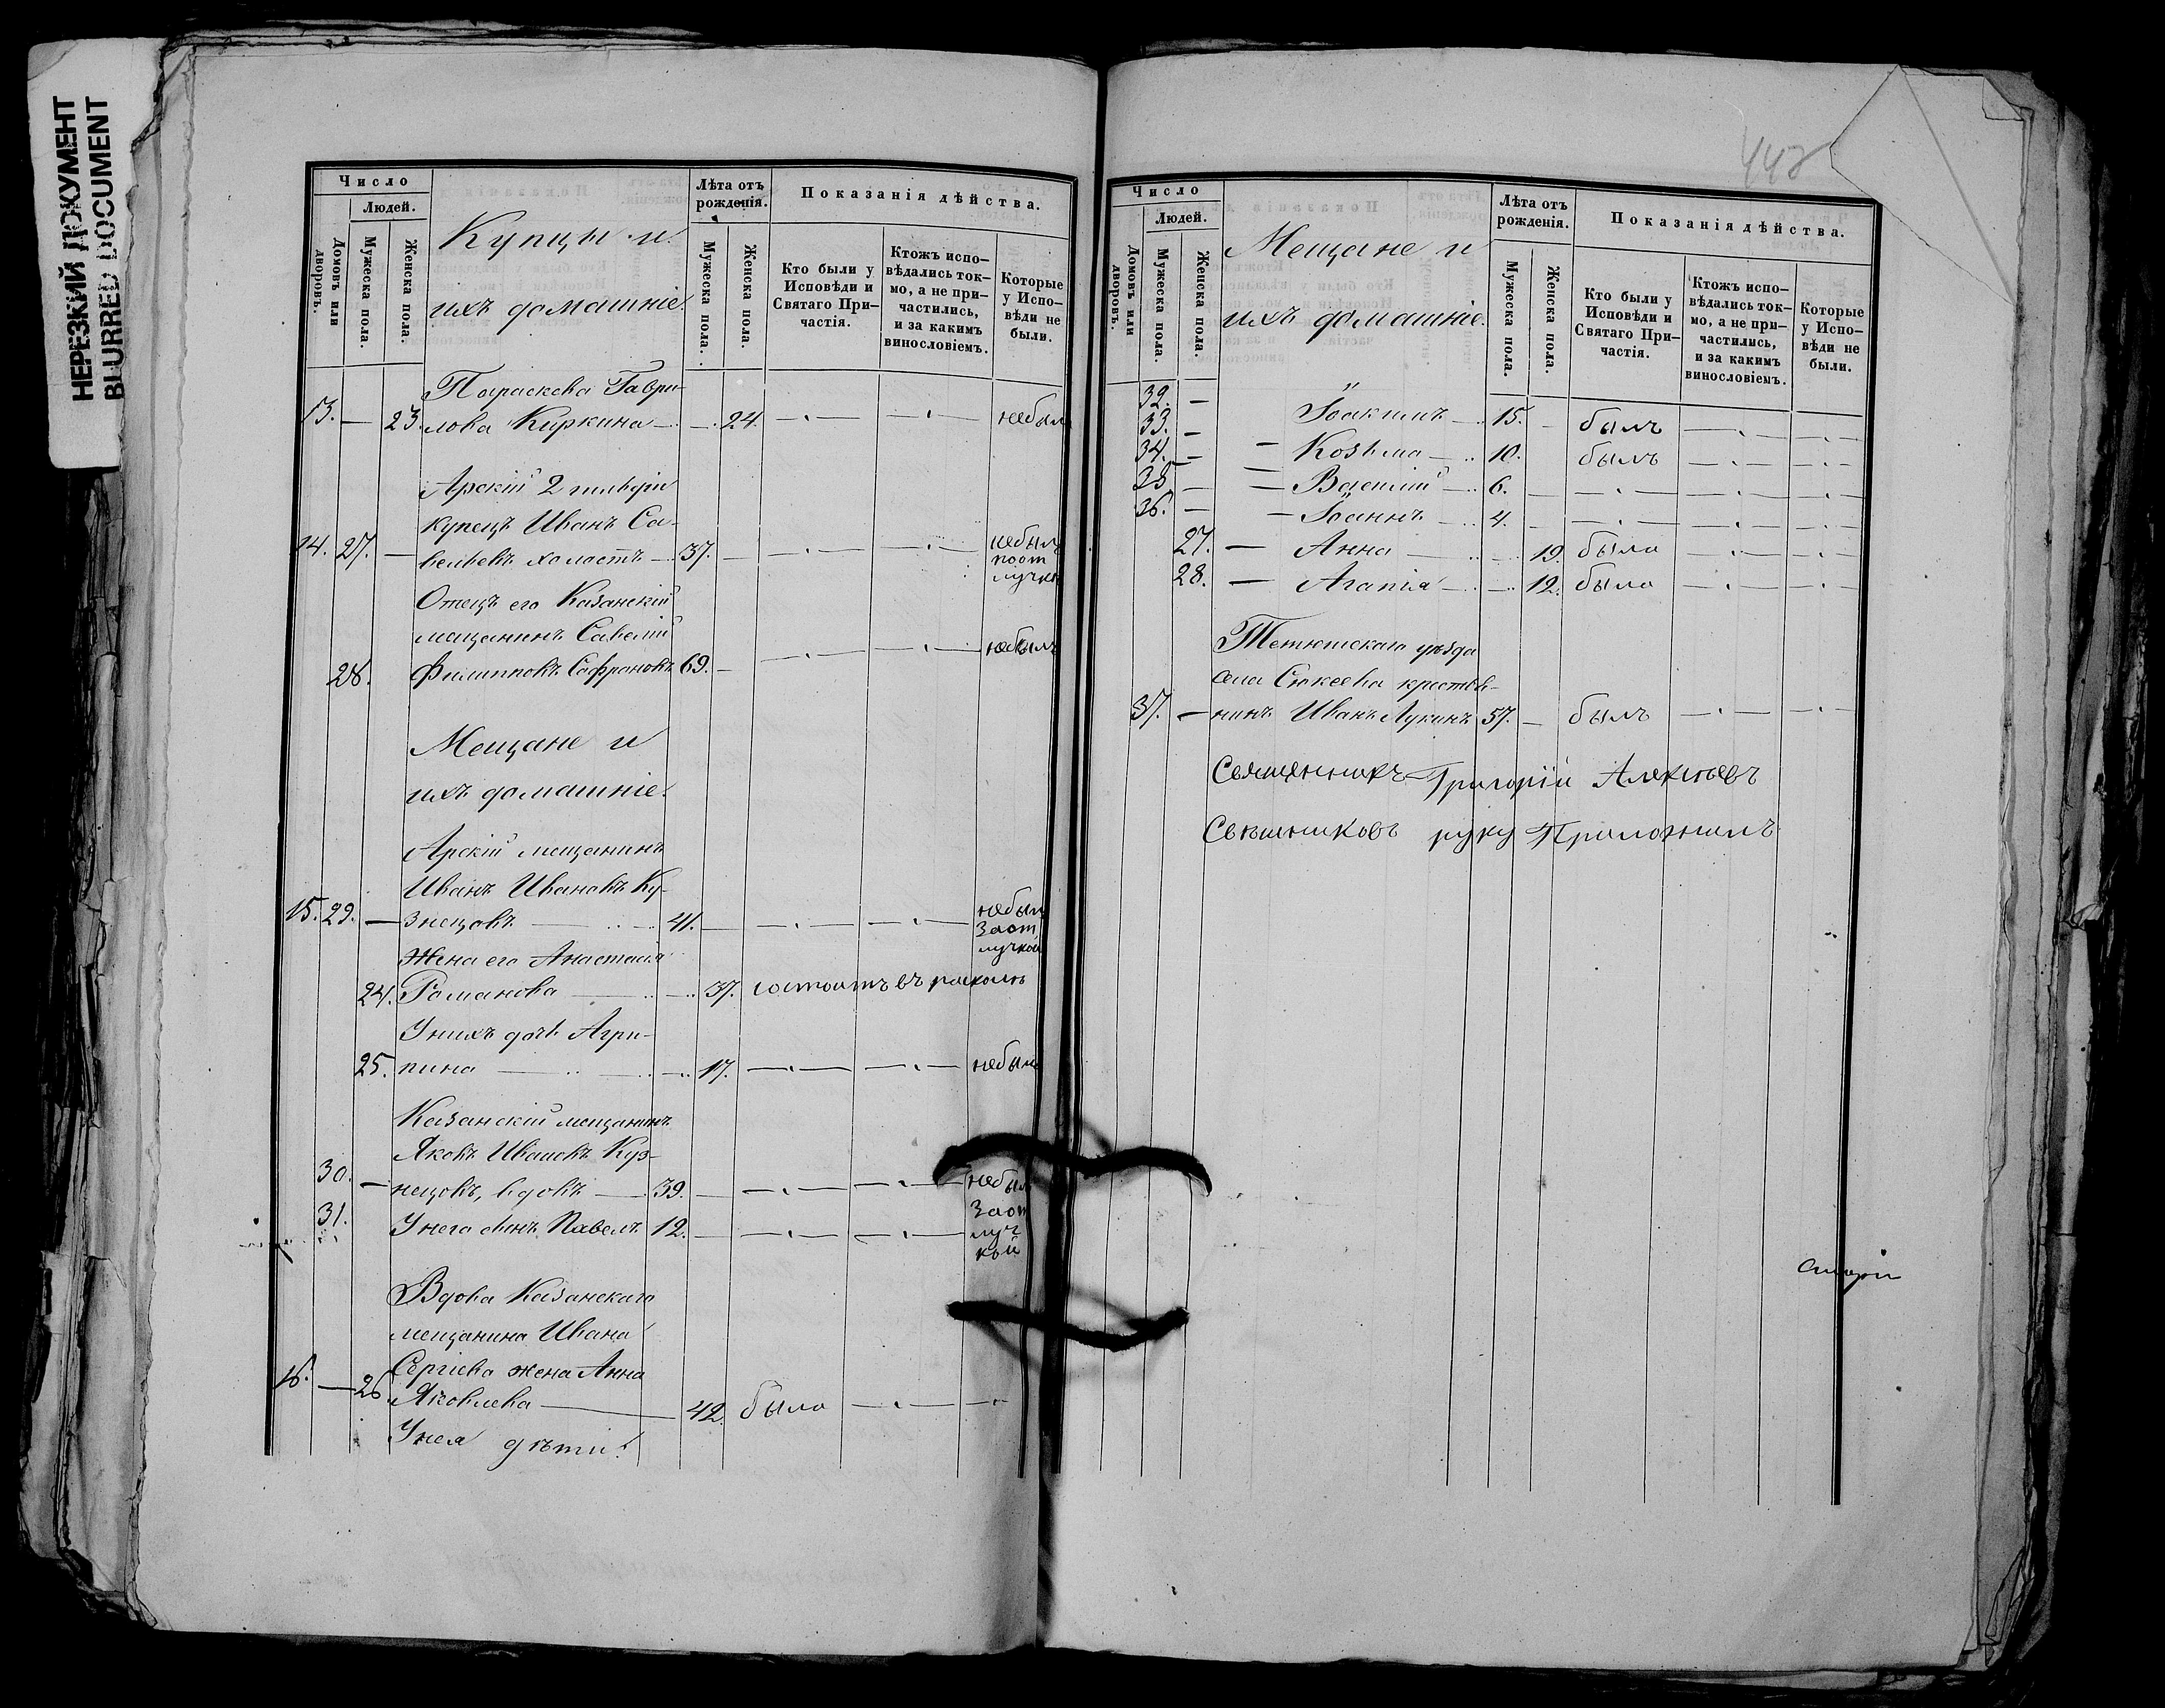 НЕРЕЗКИЙ ДОКУМЕНТ
BLURRED DOCUMENT
Число
Людей.
Домовъ или дворовъ.
Мужеска пола.
Женска пола.
Купцы и
ихъ домашніе.
Лѣта отъ рожденія.
Мужеска пола.
Женска пола.
Показанія дѣйства.
Кто были у Исповѣди и Святаго При-частія.
Ктожъ испо-вѣдались ток-мо, а не при-частились, и за какимъ винословіемъ.
Которые у Испо-вѣди не были.
Параскева Гаври-
13. — 23. лова Киркина — 24. — — небыла
Арскій 2 гильдіи
купецъ Иванъ Са-
14. 27. — вельевъ холостъ — 37. — — — небылъ
поот
лучкѣ
Отецъ его Казанскій
мещанинъ Савелій
28. Филипповъ Сафроновъ 69. — — — небылъ
Мещане и
ихъ домашніе.
Арскій мещанинъ
Иванъ Ивановъ Ку-
15. 29. — знецовъ — 41. — — — небылъ
Заот
лучкой
Жена его Анастасія
24. Романова — 37. состоитъ въ расколѣ
Унихъ дочь Агри-
25. пина — 17. — — небыла
Казанскій мещанинъ
Яковъ Ивановъ Куз-
30. — нецовъ, вдовъ — 39. — — — небылъ
31. Унего сынъ Павелъ 12. — — — Заот
луч
кой
Вдова Казанскаго
мещанина Ивана
Сергіева жена Анна
16. — 26. Яковлева — 42. была — —
Унея дѣти:
442
Число
Людей.
Домовъ или дворовъ.
Мужеска пола.
Женска пола.
Мещане и
ихъ домашніе.
Лѣта отъ рожденія.
Мужеска пола.
Женска пола.
Показанія дѣйства.
Кто были у Исповѣди и Святаго При-частія.
Ктожъ испо-вѣдались ток-мо, а не при-частились, и за какимъ винословіемъ.
Которые у Испо-вѣди не были.
32. —
33. — Іоакимъ — 15. — былъ — —
34. — — Козьма — 10. былъ — —
35 — — Василій — 6. — — — —
36. — — Іоаннъ — 4. — — — —
27. — Анна — 19. была — —
28. — Агапія — 12. была — —
Тетюшскаго уѣзда
села Сюкеева крестья-
37. — нинъ Иванъ Лукинъ 57. — былъ — —
Священникъ Григорій Алексѣевъ
Свѣшниковъ руку Приложилъ